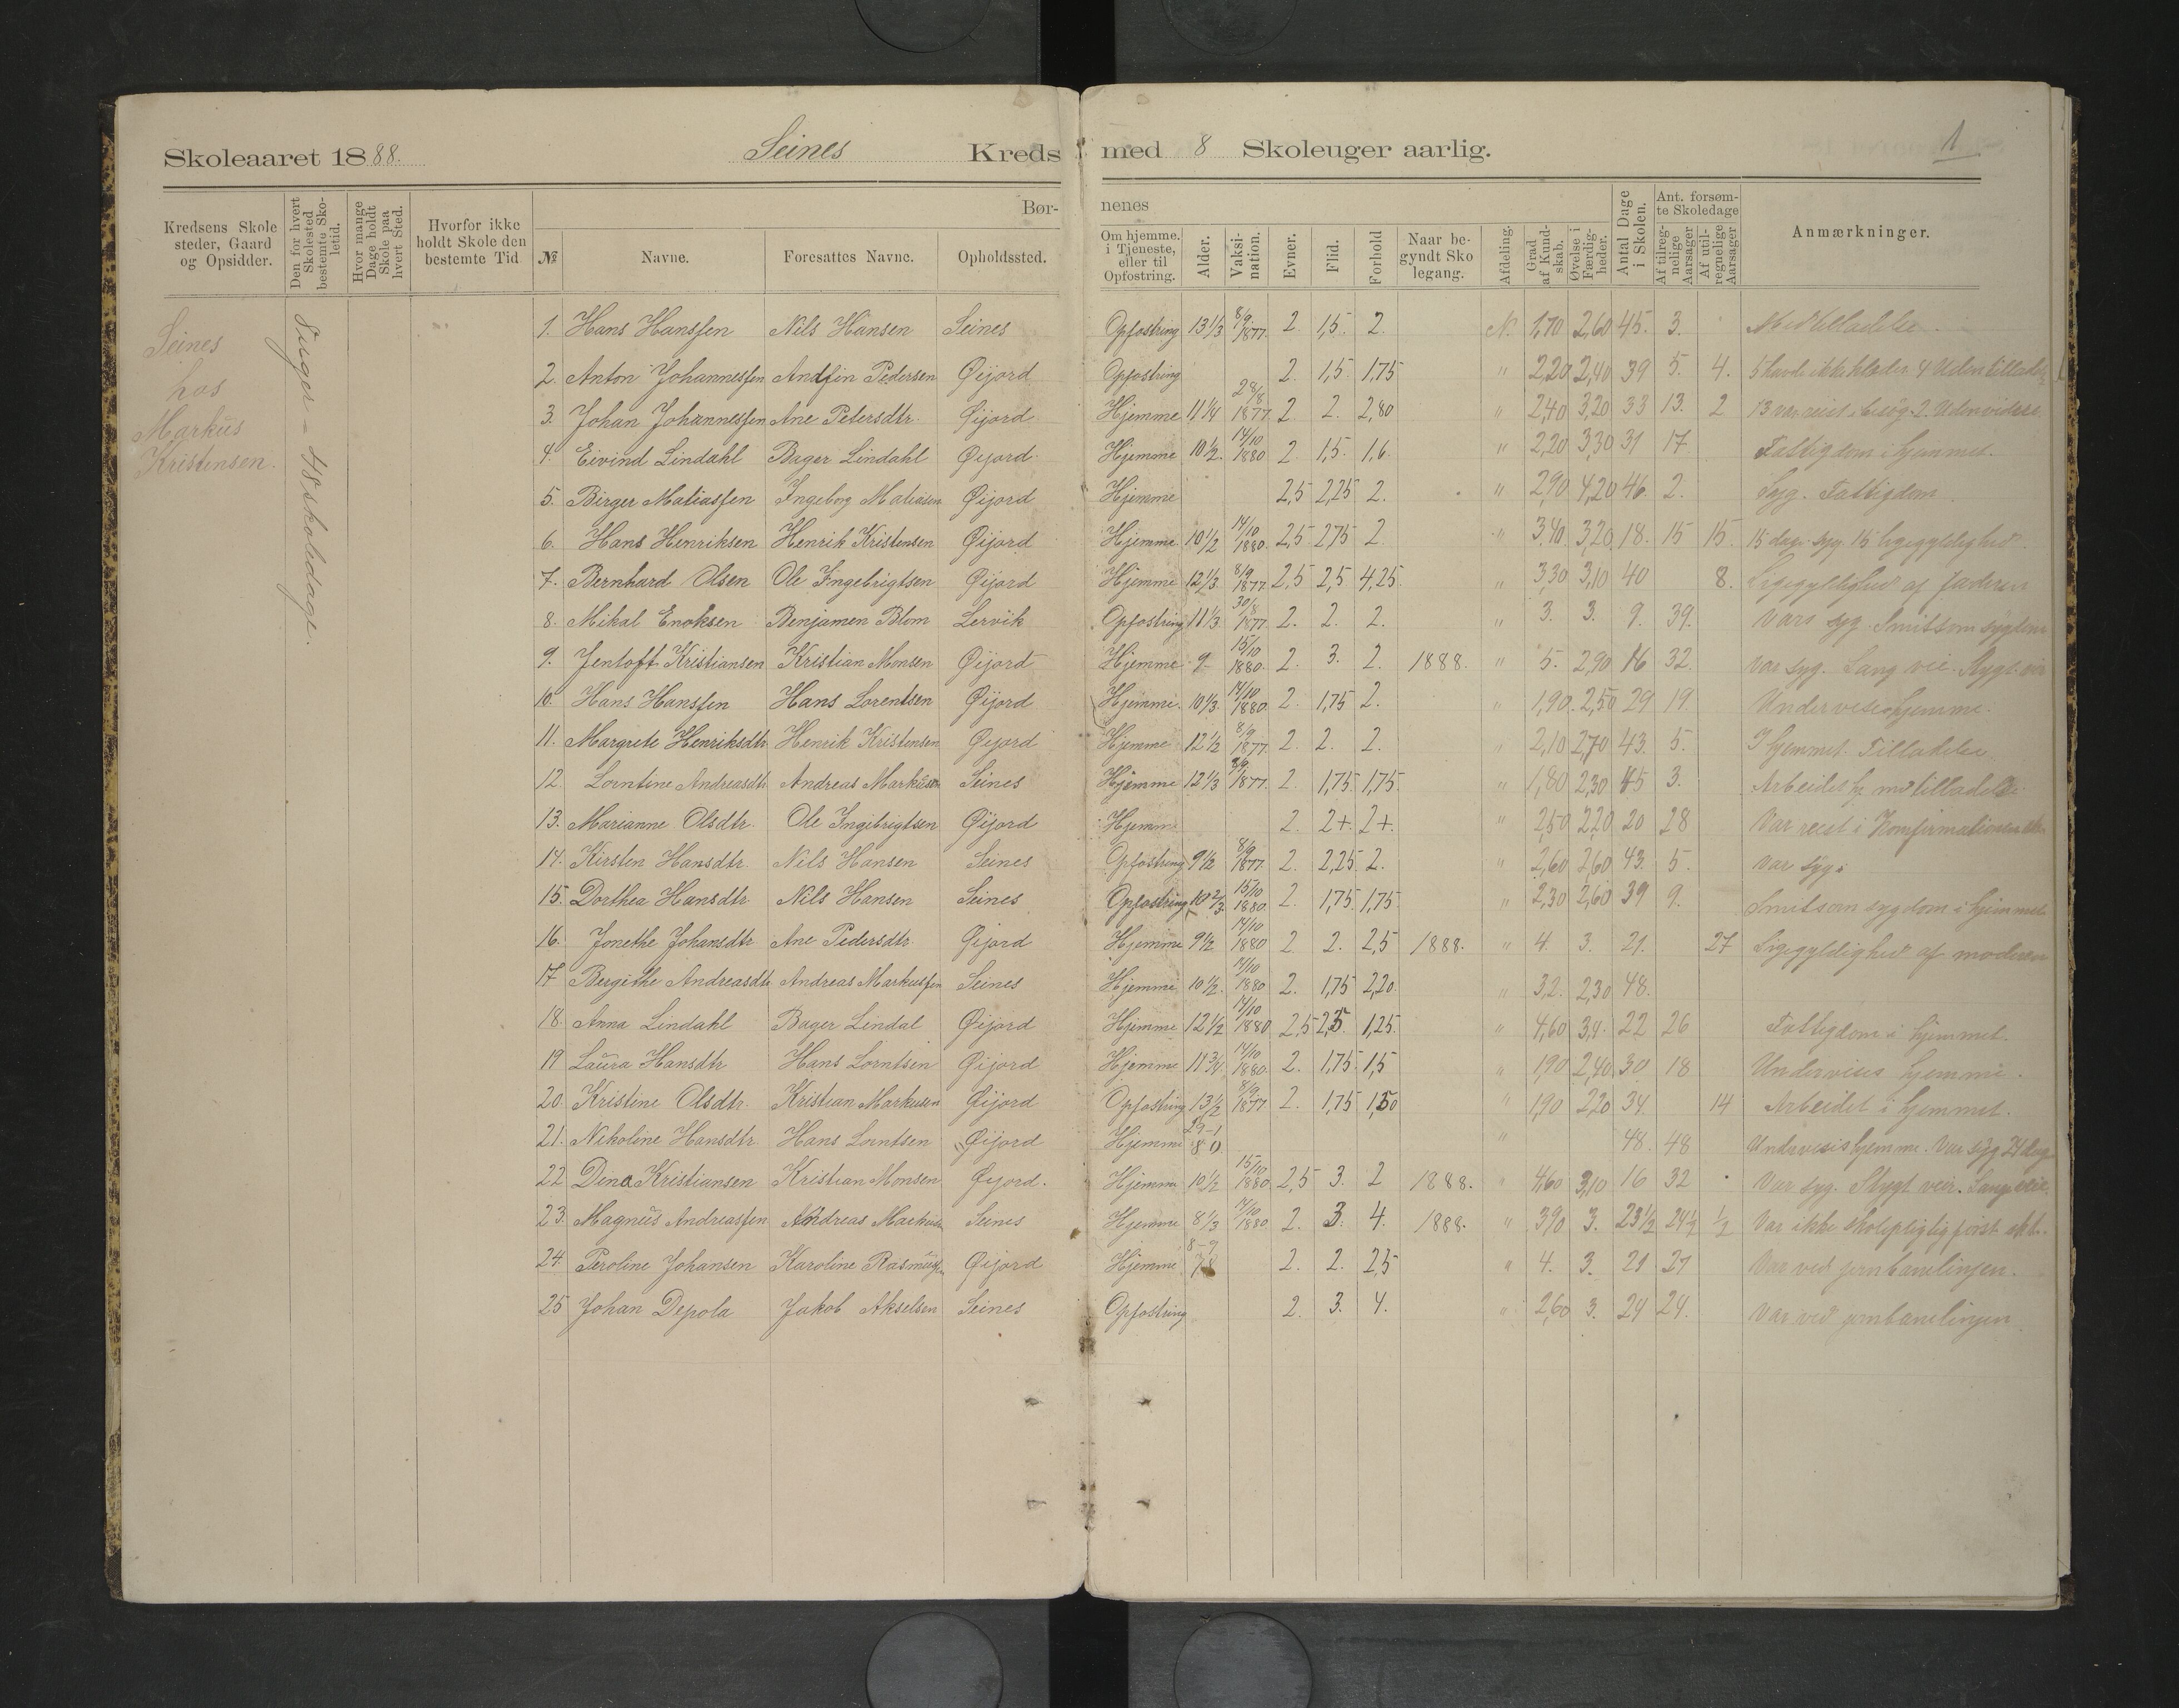 Skoleaaret 1888. Seines Kreds med 8 Skoleuger aarlig. 1
Kredsens Skolesteder, Gaard og Opsidder.
Den for hvert Skolested bestemte Skoletid.
Hvor mange Dage holdt Skole paa hvert Sted.
Hvorfor ikke holdt Skole den bestemte Tid
Børnenes
№
Navne.
Foresattes Navne.
Opholdssted.
Om hjemme, i Tjeneste, eller til Opfostring.
Alder.
Vaksination.
Evner.
Flid.
Forhold
Naar begyndt Skolegang.
Afdeling.
Grad af Kundskab.
Øvelse i Færdigheder.
Antal Dage i Skolen.
Ant. forsømte Skoledage
Af tilregnelige Aarsager
Af utilregnelige Aarsager
Anmærkninger.
Seines
hos
Markus
Kristensen.
8 uger = 48 skoledage.
1. Hans Hanssen Nils Hansen Seines Opfostring 13 1/3 8/9 1877. 2. 1,5. 2. N. 1,70 2,60 45. 3. Med tilladelse.
2. Anton Johannessen Andfin Pedersen Øijord Opfostring 2. 1,5 1,75 " 2,20 2,40 39 5. 4. 5 havde ikke klæder. 4 Uden tilladelse
3. Johan Johannessen Ane Petersdtr. Øijord Hjemme 11 1/4 28/8 1877 2. 2. 2,80 " 2,40 3,20 33 13. 2 13 var reist i besøg. 2. Uden vidste.
4. Eivind Lindahl Bager Lindahl Øijord Hjemme 10 1/2. 14/10 1880 2. 1,5. 1,6. " 2,20 3,30 31 17. Fattigdom i hjemmet.
5. Birger Matiassen Ingeborg Matiasen Øijord Hjemme 2,5 2,25 2. " 2,90 4,20 46. 2. Syg. Fattigdom.
6. Hans Henriksen Henrik Kristensen Øijord Hjemme 10 1/2 14/10 1880. 2,5 2,75 2. " 3,40 3,20 18. 15 15. 15 dage syg. 15 ligegyldighed.
7. Bernhard Olsen Ole Ingebrigtsen Øijord Hjemme 12 1/3 8/9 1877. 2,5 2,5 4,25. " 3,30 3,10 40 8. Ligegyldighed af faderen
8. Mikal Enoksen Benjamen Blom Lervik Opfostring 11 1/3 30/8 1877 2. 2. 2. " 3. 3. 9. 39. Vars syg. Smitsom sygdom
9. Jentoft Kristiansen Kristian Monsen Øijord Hjemme 9 15/10 1880. 2. 3. 2. 1888. " 5. 2,90 16 32. Var syg. Lang vei. Stygt veir
10. Hans Hanssen Hans Lorentsen Øijord Hjemme. 10 1/3. 14/10 1880 2. 1,75 2. " 1,90. 2,50 29 19 Undervises hjemme.
11. Margrete Henriksdtr. Henrik Kristensen Øijord Hjemme 12 1/2 8/9 1877. 2. 2. 2. " 2,10 2,70 43. 5. I hjemmet. Tilladelse.
12. Lorntine Andreasdtr Andreas Markusen Seines Hjemme 12 1/3 8/9 1877. 2. 1,75. 1,75. " 1,80 2,30 45 3. Arbeidet hj. med tilladelse
13. Marianne Olsdtr. Ole Ingebrigtsen Øijord Hjemme 2. 2+. 2+. " 2,50 2,20 20 28 Var reist i Konfirmationen
14. Kirsten Hansdtr. Nils Hansen Seines Opfostring 9 1/2 8/9 1877. 2. 2,25 2. " 2,60 2,60 43. 5. Var syg.
15. Dorthea Hansdtr. Nils Hansen Seines Opfostring 10 2/3. 15/10 1880. 2. 1,75. 1,75. " 2,30 2,60 39 9. Smitsom sygdom i hjemmet
16. Jonethe Johansdtr Ane Pedersdtr Øijord Hjemme 9 1/2 14/10 1880 2 2. 2,5 1888. " 4. 3. 21. 27 Ligegyldighed af moderen
17 Bergithe Andreasdtr Andreas Markussen Seines Hjemme 10 1/2. 14/10 1880 2. 1,75 2,20. " 3,2. 2,30 48.
18. Anna Lindahl Bager Lindal Øijord Hjemme 12 1/2 14/10 1880 2,5 2,5. 1,25. " 4,60 3,4. 22 26 Fattigdom i hjemmet.
19 Laura Hansdtr Hans Lorntsen Øijord Hjemme 11 3/4 14/10 1880. 2. 1,75. 1,5 " 1,90 2,40 30 18 Undervises hjemme.
20. Kristine Olsdtr. Kristian Markusen Øijord Opfostring 13 1/2 8/9 1877 2. 1,75 1,50 " 1,90 2,20 34 14 Arbeidet i hjemmet.
21. Nikoline Hansdtr. Hans Lorntsen Øijord Hjemme 29-1 80. " 48. 48 Undervises hjemme. Var syg 24 dage
22 Dina Kristiansen Kristian Monsen Øyord. Hjemme 10 1/2 15/10 1880 2,5 3. 2 1888. " 4,60 3,10 16 32 Var syg. Stygt veir. Lang vei.
23. Magnus Andreassen Andreas Markusen Seines Hjemme 8 1/3 14/10 1880 2. 3. 4. 1888. " 3,90 3. 23 1/2 24 1/2 1/2 Var ikke skolepligtig først okt.
24. Peroline Johansen Karoline Rasmussen Øijord Hjemme 8-9 78 2. 2. 2,5 " 4. 3. 21 27 Var ved jernbanelinjen.
25 Johan Depola Jakob Akselsen Seines Opfostring 2. 3. 4. " 2,60 3. 24 24. Var ved jernbanelinjen.